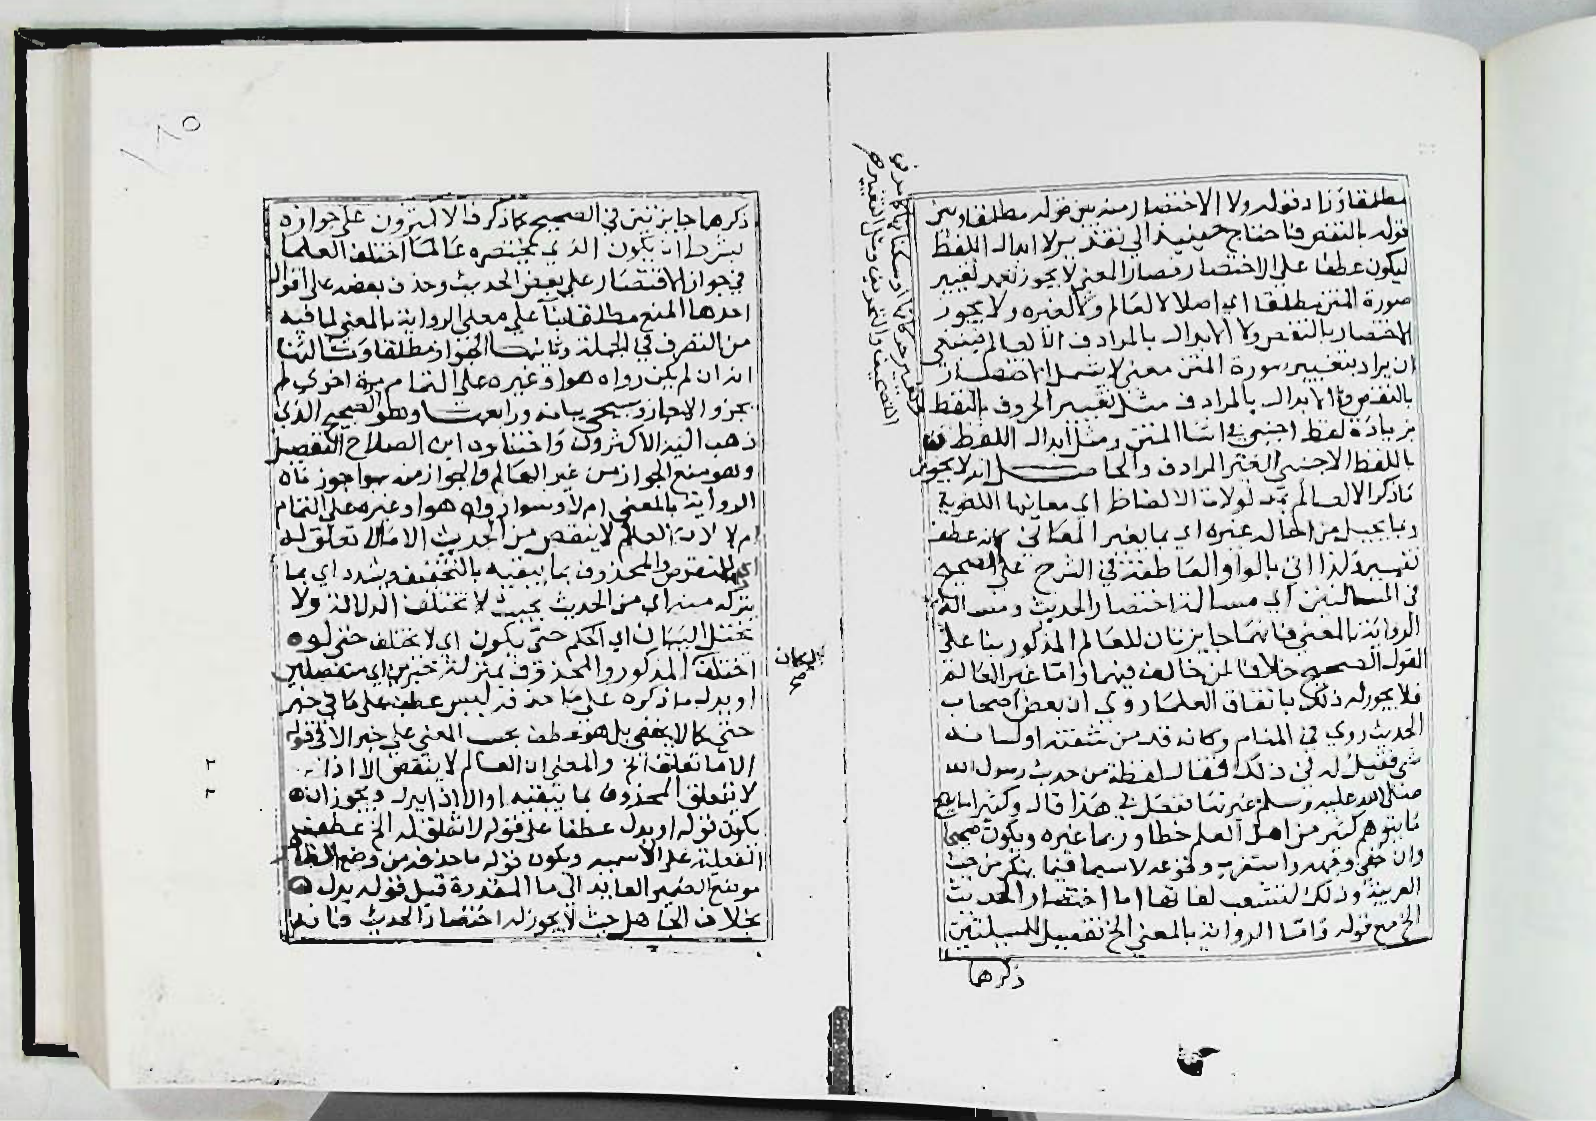 مطلقا وزاد قوله ولا الاختصار منه بين قوله مطلقا وبين
قوله بالنقص فاحتاج حينيذ الي تقدير لا ابدال اللفظ
ليكون عطفا علي الاختصار فصار المعني لا يجوز تعمد تغيير
صورة المتن مطلقا اي اصلا لا لعالم ولا لغيره ولا يجوز
الاختصار بالنقص ولا الابدال بالمرادف الا لعالم فينبغي
ان يراد بتغيير صورة المتن معني لا يشمل الاختصار
بالنقص ولا الابدال بالمرادف مثل تغيير الحروف بالنقط
بزيادة لفظ اجنبي في اثنا المتن ومثل ابدال اللفظ
باللفظ الاجنبي الغير المرادف والحاصل انه لا يجوز
ماذكر الا لعالم بمدلولات الالفاظ اي معانيها اللغوية
وبما يحيل من احال غيره اي بما يغير المعاني كانه عطف
تفسير ولذا اتي بالواو العاطفة في الشرح علي الصحيح
في المسالتين اي مسالة اختصار الحديث ومسالة
الرواية بالمعني فانهما جايزتان للعالم المذكور بنا علي
القول الصحيح خلافا لمن خالف فيهما واما غير العالم
فلا يجوز له ذلك باتفاق العلما روي ان بعض اصحاب
الحديث روي في المنام وكانه قد من شفته او لسانه
شي فقيل له في ذلك فقال لفظة من حديث رسول الله
صلي الله عليه وسلم غيرتها ففعل بي هذا قال وكثيرا ما
مايتوهم كثير من اهل العلم خطا وربما غيره ويكون صحيحا
وان خفي وفهمه واستغرب وقوعه لا سيما فيما ينكر من حيث
العربية وذلك لتشعب لغاتها اما اختصار الحديث
الخ مع قوله واما الرواية بالمعني الخ تفصيل للمسيلتين
ذكرهما
١٨٥
ذكرهما جايزتين في الصحيح كما ذكر فالاكثرون علي جوازه
بشرط ان يكون الذي يختصره عالما اختلف العلما
في جواز الاقتصار علي بعض الحديث وحذف بعضه علي اقوال
احدها المنع مطلقا بنا علي منع الرواية بالمعني لما فيه
من التصرف في الجملة وثانيها الجواز مطلقا وثالثها
انه ان لم يكن رواه هو او غيره علي التمام مرة اخري لم
يجز والا جاز وسيجي بيانه ورابعها وهو الصحيح الذي
ذهب اليه الاكثرون واختاره ابن الصلاح التفصيل
وهو منع الجواز من غير العالم والجواز منه سوا جوز
الرواية بالمعني ام لا وسوا رواه هو او غيره علي التمام
ام لا لان العالم لا ينقص من الحديث الا مالا تعلق له
اي للمنقوص والمحذوف بما يبقيه بالتخفيف ويشدد اي بما
يتركه منه اي من الحديث بحيث لا تختلف الدلالة ولا
يختل البيان اي الحكم حتي يكون اي لا يختلف حتي لو
اختلف المذكور والمحذوف بمنزلة خبرين اي منفصلين
او يدل ما ذكره علي ما حذفه ليس عطف علي ما في خبر
حتي كما لا يخفي بل هو عطف بحسب المعني علي خبر الا في قوله
الا ما تعلق الخ والمعني ان العالم لا ينقص الا اذا
لا يتعلق المحذوف بما يبقيه او الا اذا يدل ويجوز ان
يكون قوله او يدل عطفا علي قوله لا تعلق له الخ عطف
الفعلية علي الاسمية ويكون قوله ما حذفه من وضع الظاهر
موضع الضمير العايد الي ما المقدرة قبل قوله يدل
بخلاف الجاهل حيث لا يجوز له اختصار الحديث فانه
لكان
صح